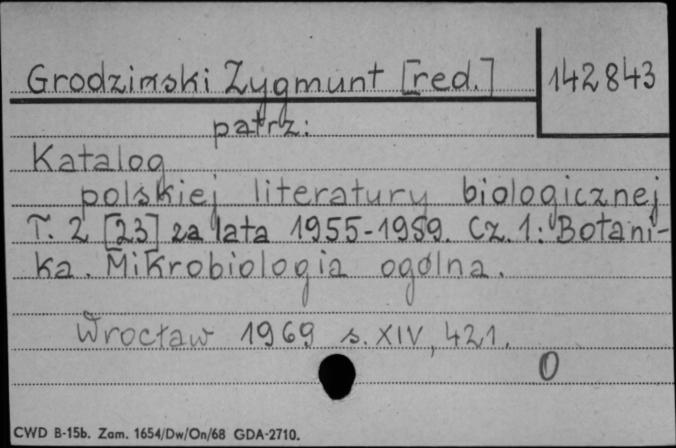 Grodziński Zygmunt [red.] 142843
patrz:
Katalog
polskiej literatury biologicznej
T. 2 [23] za lata 1955-1959. Cz. 1: Botani-
ka. Mikrobiologia ogólna.
Wrocław 1969 s. XIV, 421.
O
CWD B-15b. Zam. 1654/Dw/On/68 GDA-2710.